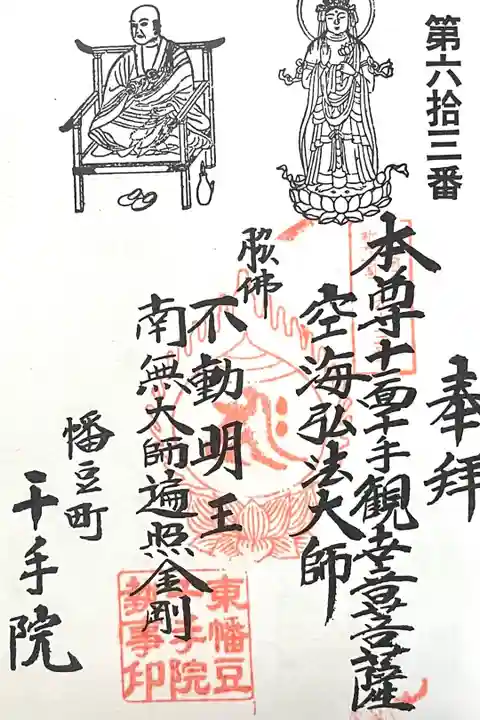 第六拾三番
奉拜
本尊十一面千手観世音菩薩
空海弘法大師
脇佛
不動明王
南無大師遍照金剛
幡豆町
千手院
東幡豆
千手院
執事印